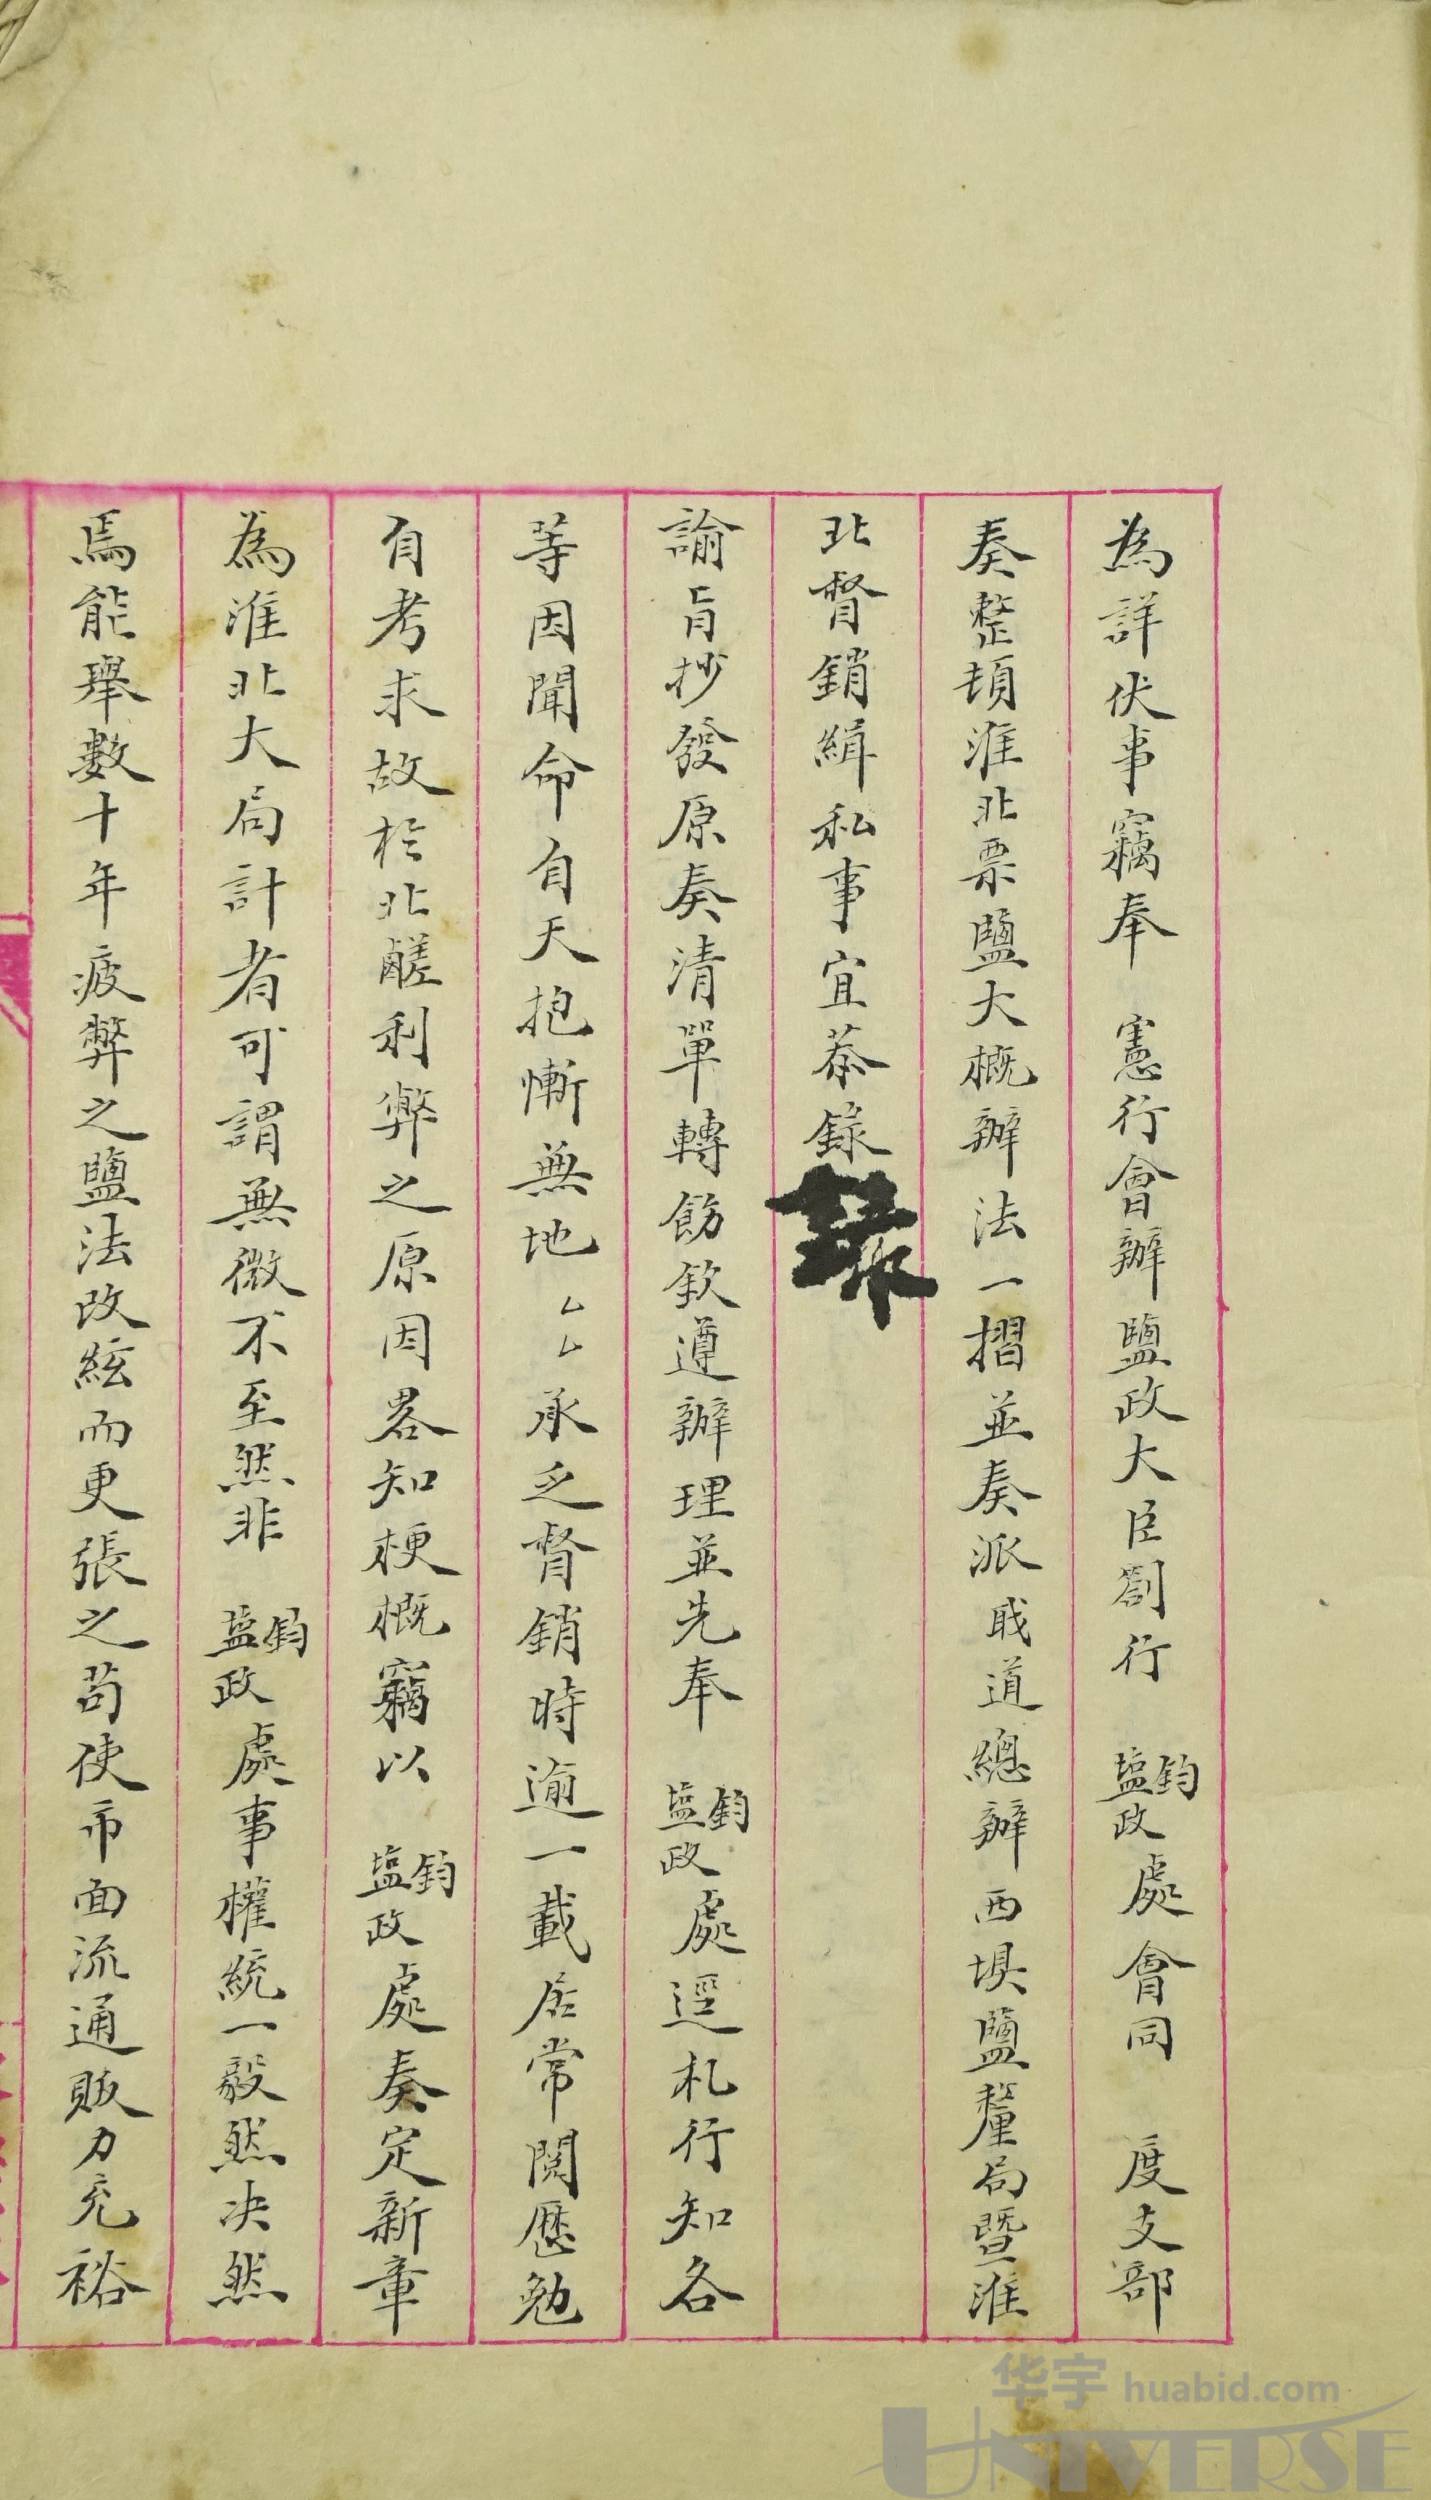 為詳伏事竊奉　憲行會辦鹽政大臣劄行　鈞鹽政處會同　度支部
奏整頓淮北票鹽大概辦法一摺並奏派職道總辦西壩鹽釐局暨淮
北督銷緝私事宜恭錄
諭旨抄發原奏清單轉飭欽遵辦理並先奉　鈞鹽政處逕札行知各
等因聞命自天抱慚無地ムム承乏督銷時逾一載居常閱歷勉
自考求故於北鹺利弊之原因畧知梗概竊以　鈞鹽政處奏定新章
為淮北大局計者可謂無微不至然非　鈞鹽政處事權統一毅然決然
焉能舉數十年疲弊之鹽法改絃而更張之苟使市面流通販力充裕
华宇 huabid.com
UNIVERSE